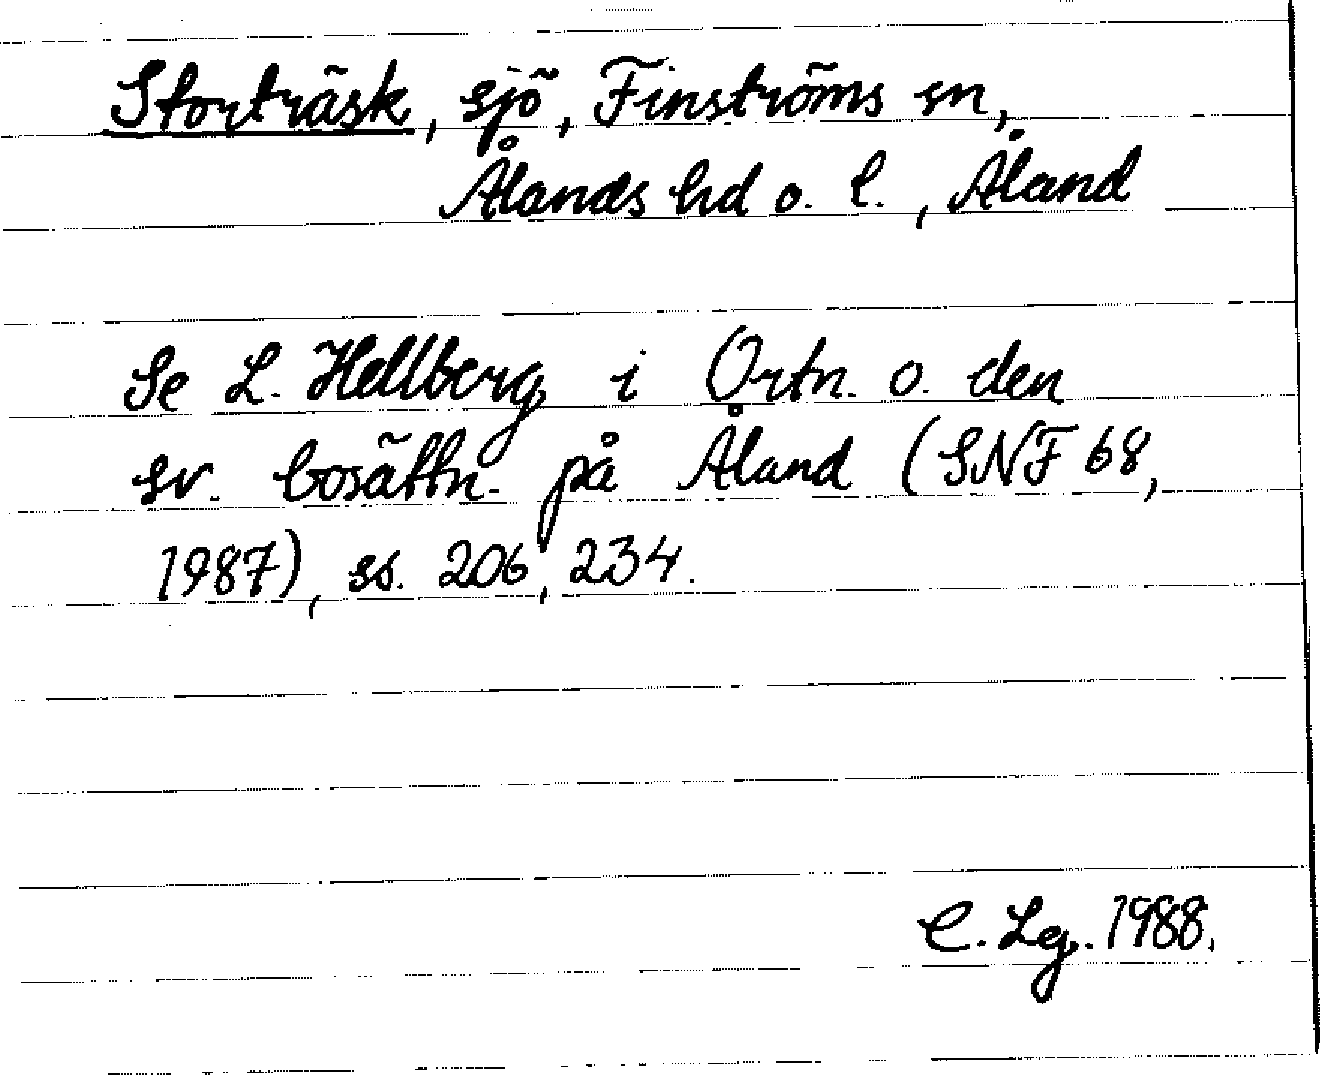 Storträsk, sjö, Finströms sn,
Ålands hd o. l., Åland
Se L. Hellberg i Ortn. o. den
sv. bosättn. på Åland (SNF 68,
1987), ss. 206, 234.
C. Lg. 1988.